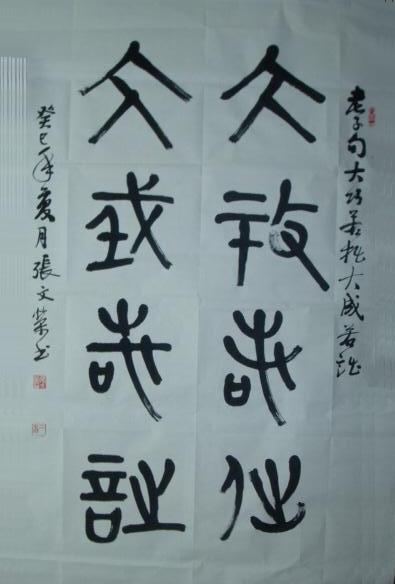 老子句大巧若拙大成若詘
大攷若㑁
大成若詘
癸巳年夏月張文榮书